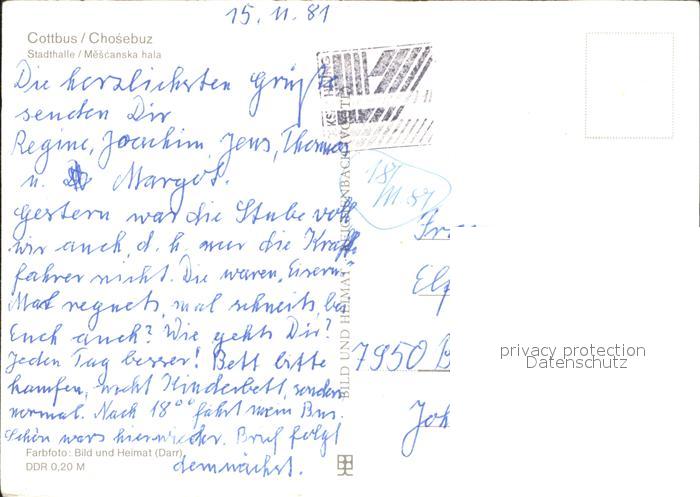 15.11.81
Cottbus / Chośebuz
Stadthalle / Měšćanska hala
Die herzlichsten Grüße
senden Dir
Regine, Joachim, Jens, Thomas
u. Margot.
Gestern war die Stube voll
wir auch, d. h. nur die Kraft-
fahrer nicht. Die waren „Eisern“
Mal regnets, mal schneits, bei
Euch auch? Wie gehts Dir?
Jeden Tag besser! Bett bitte
kaufen, nicht Kinderbett, sondern
normal. Nach 18°° fährt mein Bus.
Schön wars hier wieder. Brief folgt
demnächst.
Farbfoto: Bild und Heimat (Darr)
DDR 0,20 M
BILD UND HEIMAT REICHENBACH
181
7950 B
Joh
privacy protection
Datenschutz